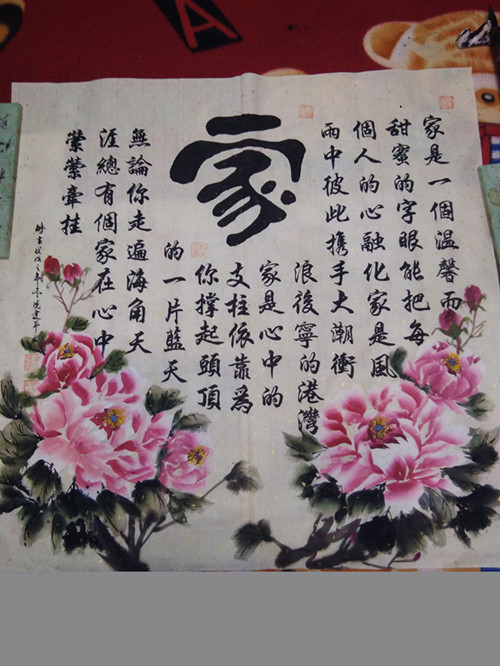 家
家是一個溫馨而
甜蜜的字眼能把每
個人的心融化家是風
雨中彼此攜手大潮衝
浪後寧的港灣
家是心中的
支柱依靠為
你撐起頭頂
的一片藍天
無論你走遍海角天
涯總有個家在心中
縈縈牽挂
A